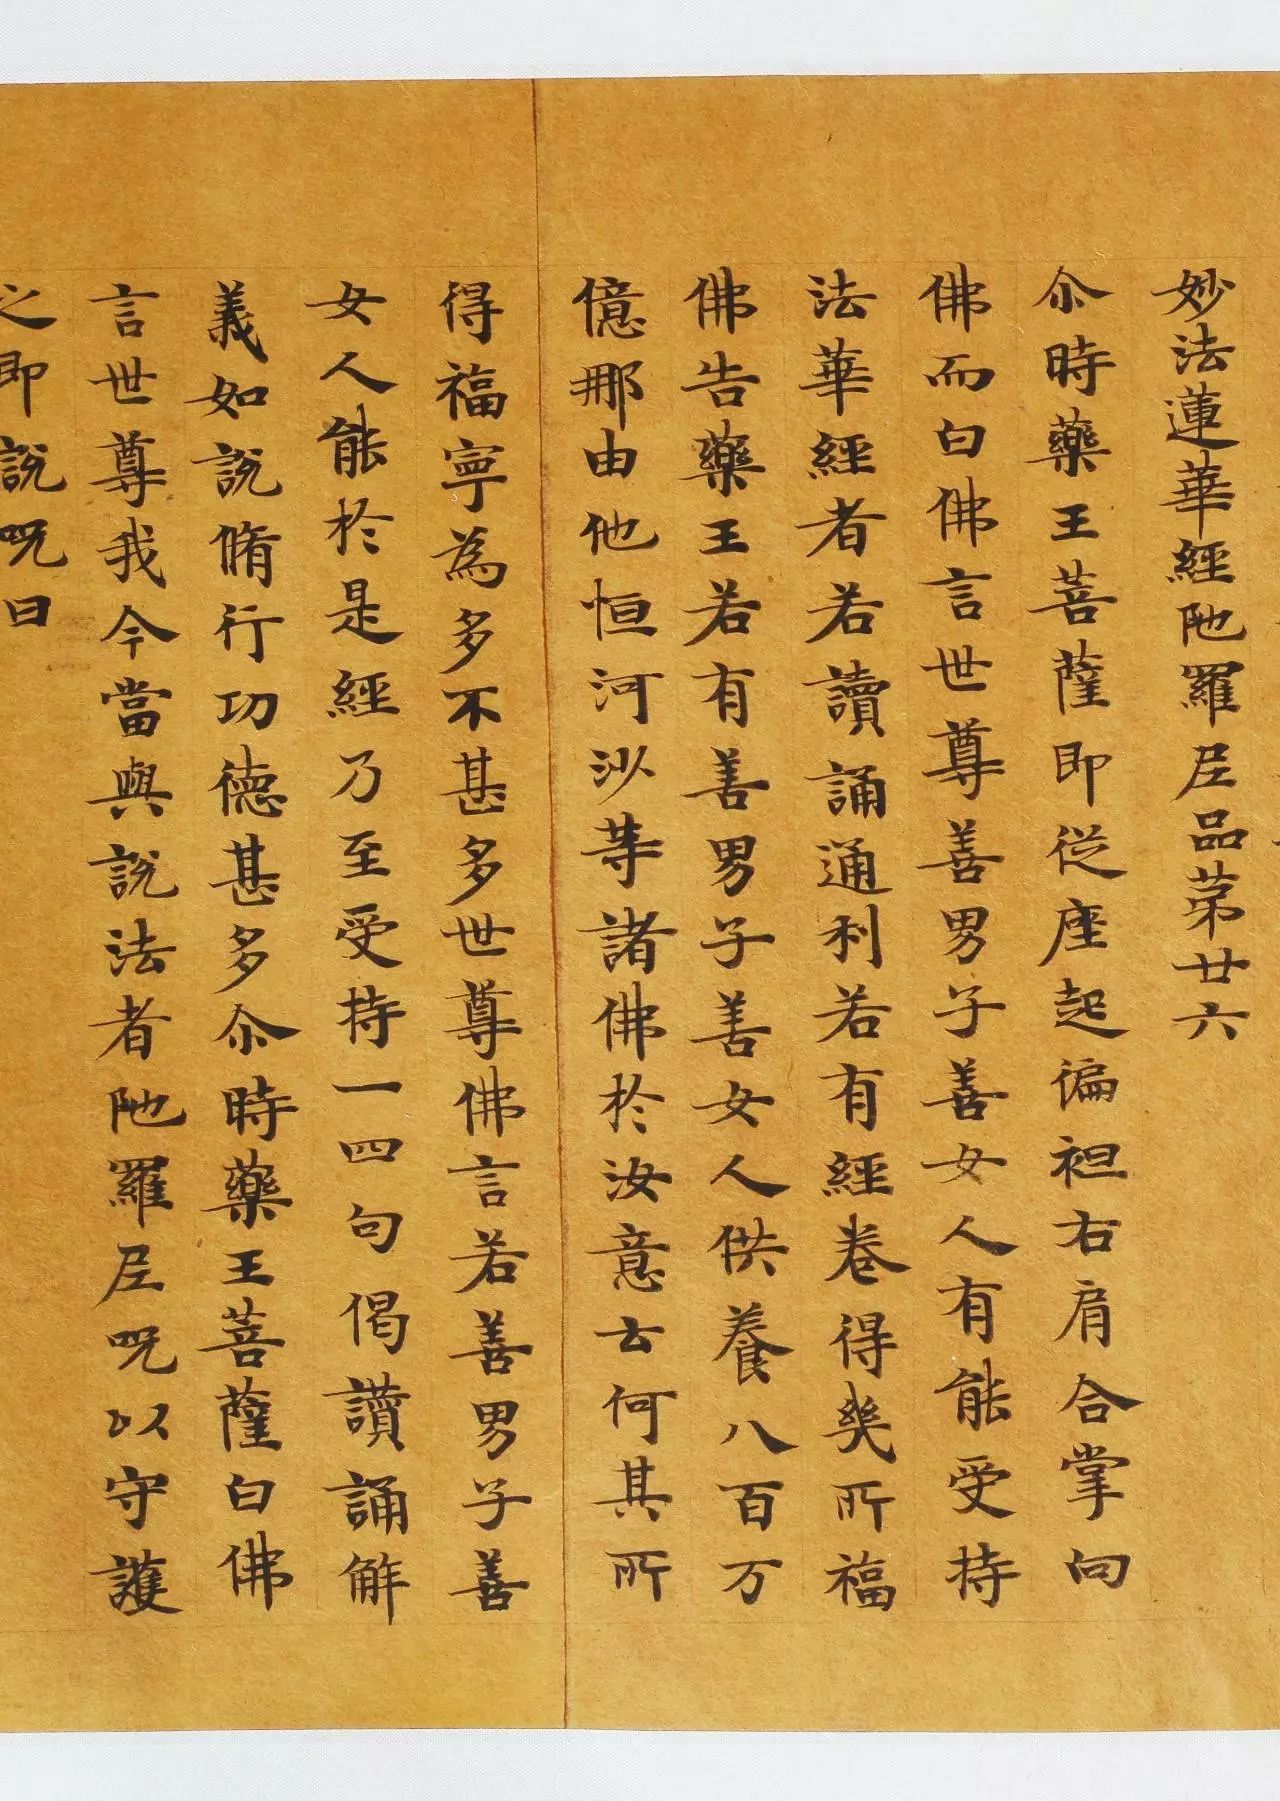 妙法蓮華經陁羅尼品第廿六
尒時藥王菩薩即從座起徧袒右肩合掌向
佛而白佛言世尊善男子善女人有能受持
法華經者若讀誦通利若有經卷得幾所福
佛告藥王若有善男子善女人供養八百万
億那由他恒河沙等諸佛於汝意云何其所
得福寧為多不甚多世尊佛言若善男子善
女人能於是經乃至受持一四句偈讀誦解
義如說脩行功德甚多尒時藥王菩薩白佛
言世尊我今當與說法者陁羅尼呪以守護
之即說呪曰